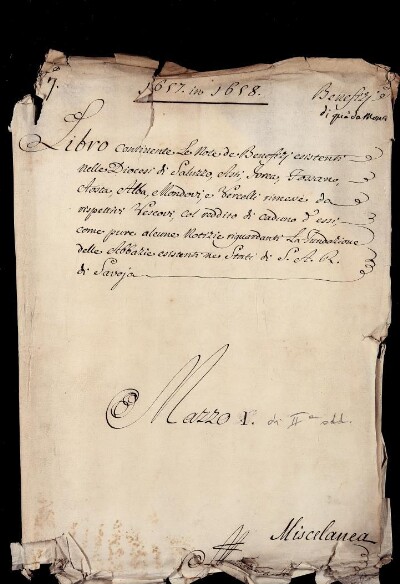 7.
1657. in 1658.
Benefizj
di quà da Monti
Libro continente Le Note de Benefizj esistenti
nelle Diocesi di Saluzzo, Asti, Ivrea, Fossano,
Aosta, Alba, Mondovì e Vercelli rimesse da
rispettivi Vescovi, col reddito di caduno d'essi,
come pure alcune Notizie riguardanti La Fondazione
delle Abbazie esistenti ne Stati di S. A. R.
di Savoja
Mazzo 1. di IIª add.
Miscelanea